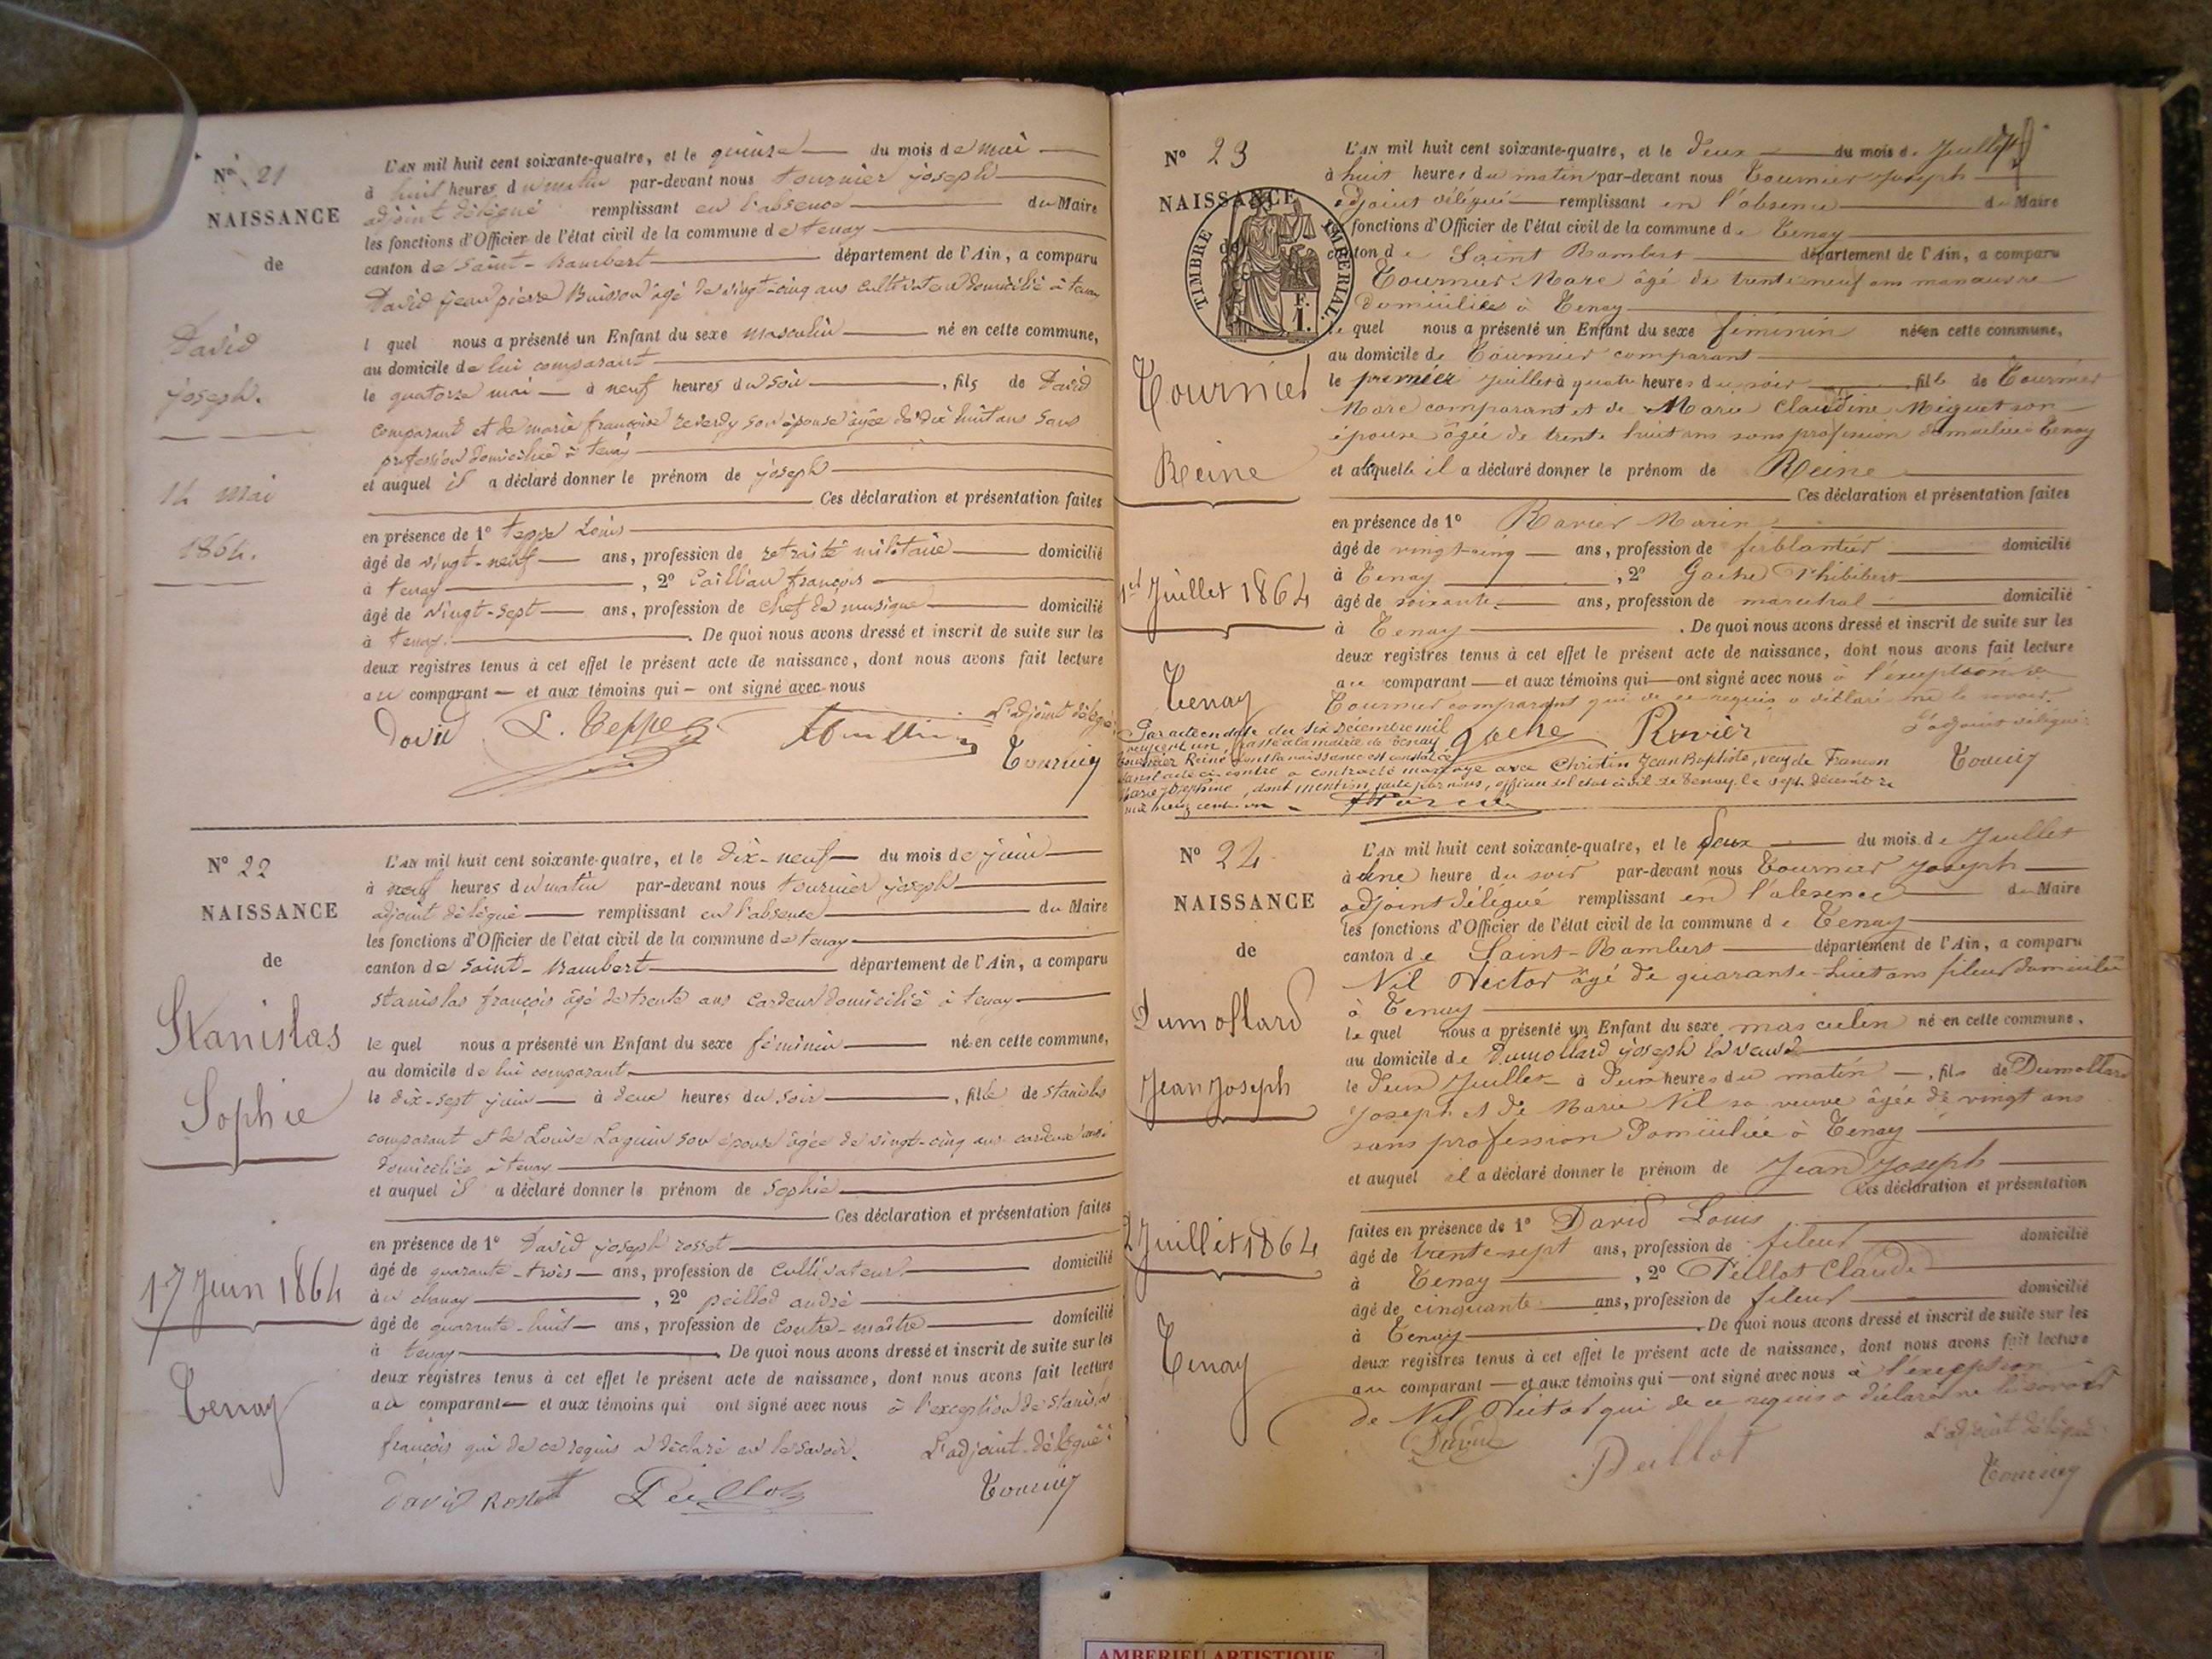 N° 21
NAISSANCE
de
David
joseph.
14 mai
1864.
L'AN mil huit cent soixante-quatre, et le quinze du mois de mai
à huit heures du matin par-devant nous tournier joseph
adjoint délégué remplissant en l'absence du Maire
les fonctions d'Officier de l'état civil de la commune de tenay
canton de Saint-Rambert département de l'Ain, a comparu
David jean pierre Buisson âgé de vingt-cinq ans cultivateur domicilié à tenay
l quel nous a présenté un Enfant du sexe masculin né en cette commune,
au domicile de lui comparant
le quatorze mai à neuf heures du soir, fils de David
comparant et de marie françoise reverdy son épouse âgée de dix huit ans sans
profession domiciliée à tenay
et auquel il a déclaré donner le prénom de joseph
Ces déclaration et présentation faites
en présence de 1° teppe Louis
âgé de vingt-neuf ans, profession de retraité militaire domicilié
à tenay, 2° françois
âgé de vingt-sept ans, profession de chef de musique domicilié
à tenay. De quoi nous avons dressé et inscrit de suite sur les
deux registres tenus à cet effet le présent acte de naissance, dont nous avons fait lecture
au comparant et aux témoins qui ont signé avec nous
David L. Teppe L'adjoint délégué
Tournier
N° 22
NAISSANCE
de
Stanislas
Sophie
17 Juin 1864
Tenay
L'AN mil huit cent soixante-quatre, et le dix-neuf du mois de juin
à neuf heures du matin par-devant nous tournier joseph
adjoint délégué remplissant en l'absence du Maire
les fonctions d'Officier de l'état civil de la commune de tenay
canton de Saint-Rambert département de l'Ain, a comparu
Stanislas françois âgé de trente ans cardeur domicilié à tenay
le quel nous a présenté un Enfant du sexe féminin né en cette commune,
au domicile de lui comparant
le dix-sept juin à deux heures du soir, fille de Stanislas
comparant et de Louise Laguin son épouse âgée de vingt-cinq ans cardeuse
domiciliée à tenay
et auquel il a déclaré donner le prénom de Sophie
Ces déclaration et présentation faites
en présence de 1° David joseph rosset
âgé de quarante-trois ans, profession de Cultivateur domicilié
à chanay, 2° peillod andré
âgé de quarante-huit ans, profession de contre-maître domicilié
à tenay De quoi nous avons dressé et inscrit de suite sur les
deux registres tenus à cet effet le présent acte de naissance, dont nous avons fait lecture
au comparant et aux témoins qui ont signé avec nous à l'exception de Stanislas
françois qui de ce requis a déclaré ne le savoir. L'adjoint-délégué
David Rosset Peillod Tournier
N° 23
NAISSANCE
de
TIMBRE IMPERIAL
F. 1.
Tournier
Reine
1er Juillet 1864
Tenay
L'AN mil huit cent soixante-quatre, et le deux du mois de Juillet
à huit heures du matin par-devant nous Tournier Joseph
adjoint délégué remplissant en l'absence du Maire
fonctions d'Officier de l'état civil de la commune de Tenay
canton de Saint Rambert département de l'Ain, a comparu
Tournier Marc âgé de trente neuf ans manœuvre
domicilié à Tenay
le quel nous a présenté un Enfant du sexe féminin née en cette commune,
au domicile de Tournier comparant
le premier juillet à quatre heures du soir fille de Tournier
Marc comparant et de Marie Claudine Miguet son
épouse âgée de trente huit ans sans profession domiciliée à Tenay
et à laquelle il a déclaré donner le prénom de Reine
Ces déclaration et présentation faites
en présence de 1° Ravier Marin
âgé de vingt-cinq ans, profession de ferblantier domicilié
à Tenay, 2° Gache Philibert
âgé de soixante ans, profession de maréchal domicilié
à Tenay. De quoi nous avons dressé et inscrit de suite sur les
deux registres tenus à cet effet le présent acte de naissance, dont nous avons fait lecture
au comparant et aux témoins qui ont signé avec nous à l'exception de
Tournier comparant qui de ce requis a déclaré ne le savoir.
Gache Ravier L'adjoint délégué
Tournier
Par acte en date du six Décembre mil
neuf cent un, passé à la mairie de Tenay
Tournier Reine dont la naissance est constatée
dans l'acte ci-contre a contracté mariage avec Christin Jean Baptiste, veuf de Francon
Marie Joséphine, dont mention faite par nous, officier de l'état civil de Tenay le sept décembre
mil neuf cent un
N° 24
NAISSANCE
de
Dumollard
Jean Joseph
2 Juillet 1864
Tenay
L'AN mil huit cent soixante-quatre, et le deux du mois de Juillet
à une heure du soir par-devant nous Tournier Joseph
adjoint délégué remplissant en l'absence du Maire
les fonctions d'Officier de l'état civil de la commune de Tenay
canton de Saint-Rambert département de l'Ain, a comparu
Nil Victor âgé de quarante-huit ans fileur domicilié
à Tenay
le quel nous a présenté un Enfant du sexe masculin né en cette commune,
au domicile de Dumollard joseph la veuve
le deux Juillet à deux heures du matin, fils de Dumollard
Joseph et de Marie Nil sa veuve âgée de vingt ans
sans profession domiciliée à Tenay
et auquel il a déclaré donner le prénom de Jean Joseph
Ces déclaration et présentation
faites en présence de 1° David Louis
âgé de trente sept ans, profession de fileur domicilié
à Tenay, 2° Peillot Claude
âgé de cinquante ans, profession de fileur domicilié
à Tenay. De quoi nous avons dressé et inscrit de suite sur les
deux registres tenus à cet effet le présent acte de naissance, dont nous avons fait lecture
au comparant et aux témoins qui ont signé avec nous à l'exception
de Nil Victor qui de ce requis a déclaré ne le savoir
L'adjoint délégué
David Peillot Tournier
AMBERIEU ARTISTIQUE